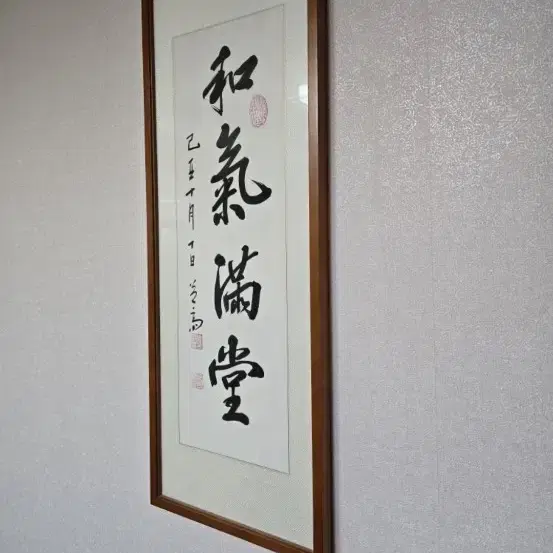 和氣滿堂
己亥十月十日